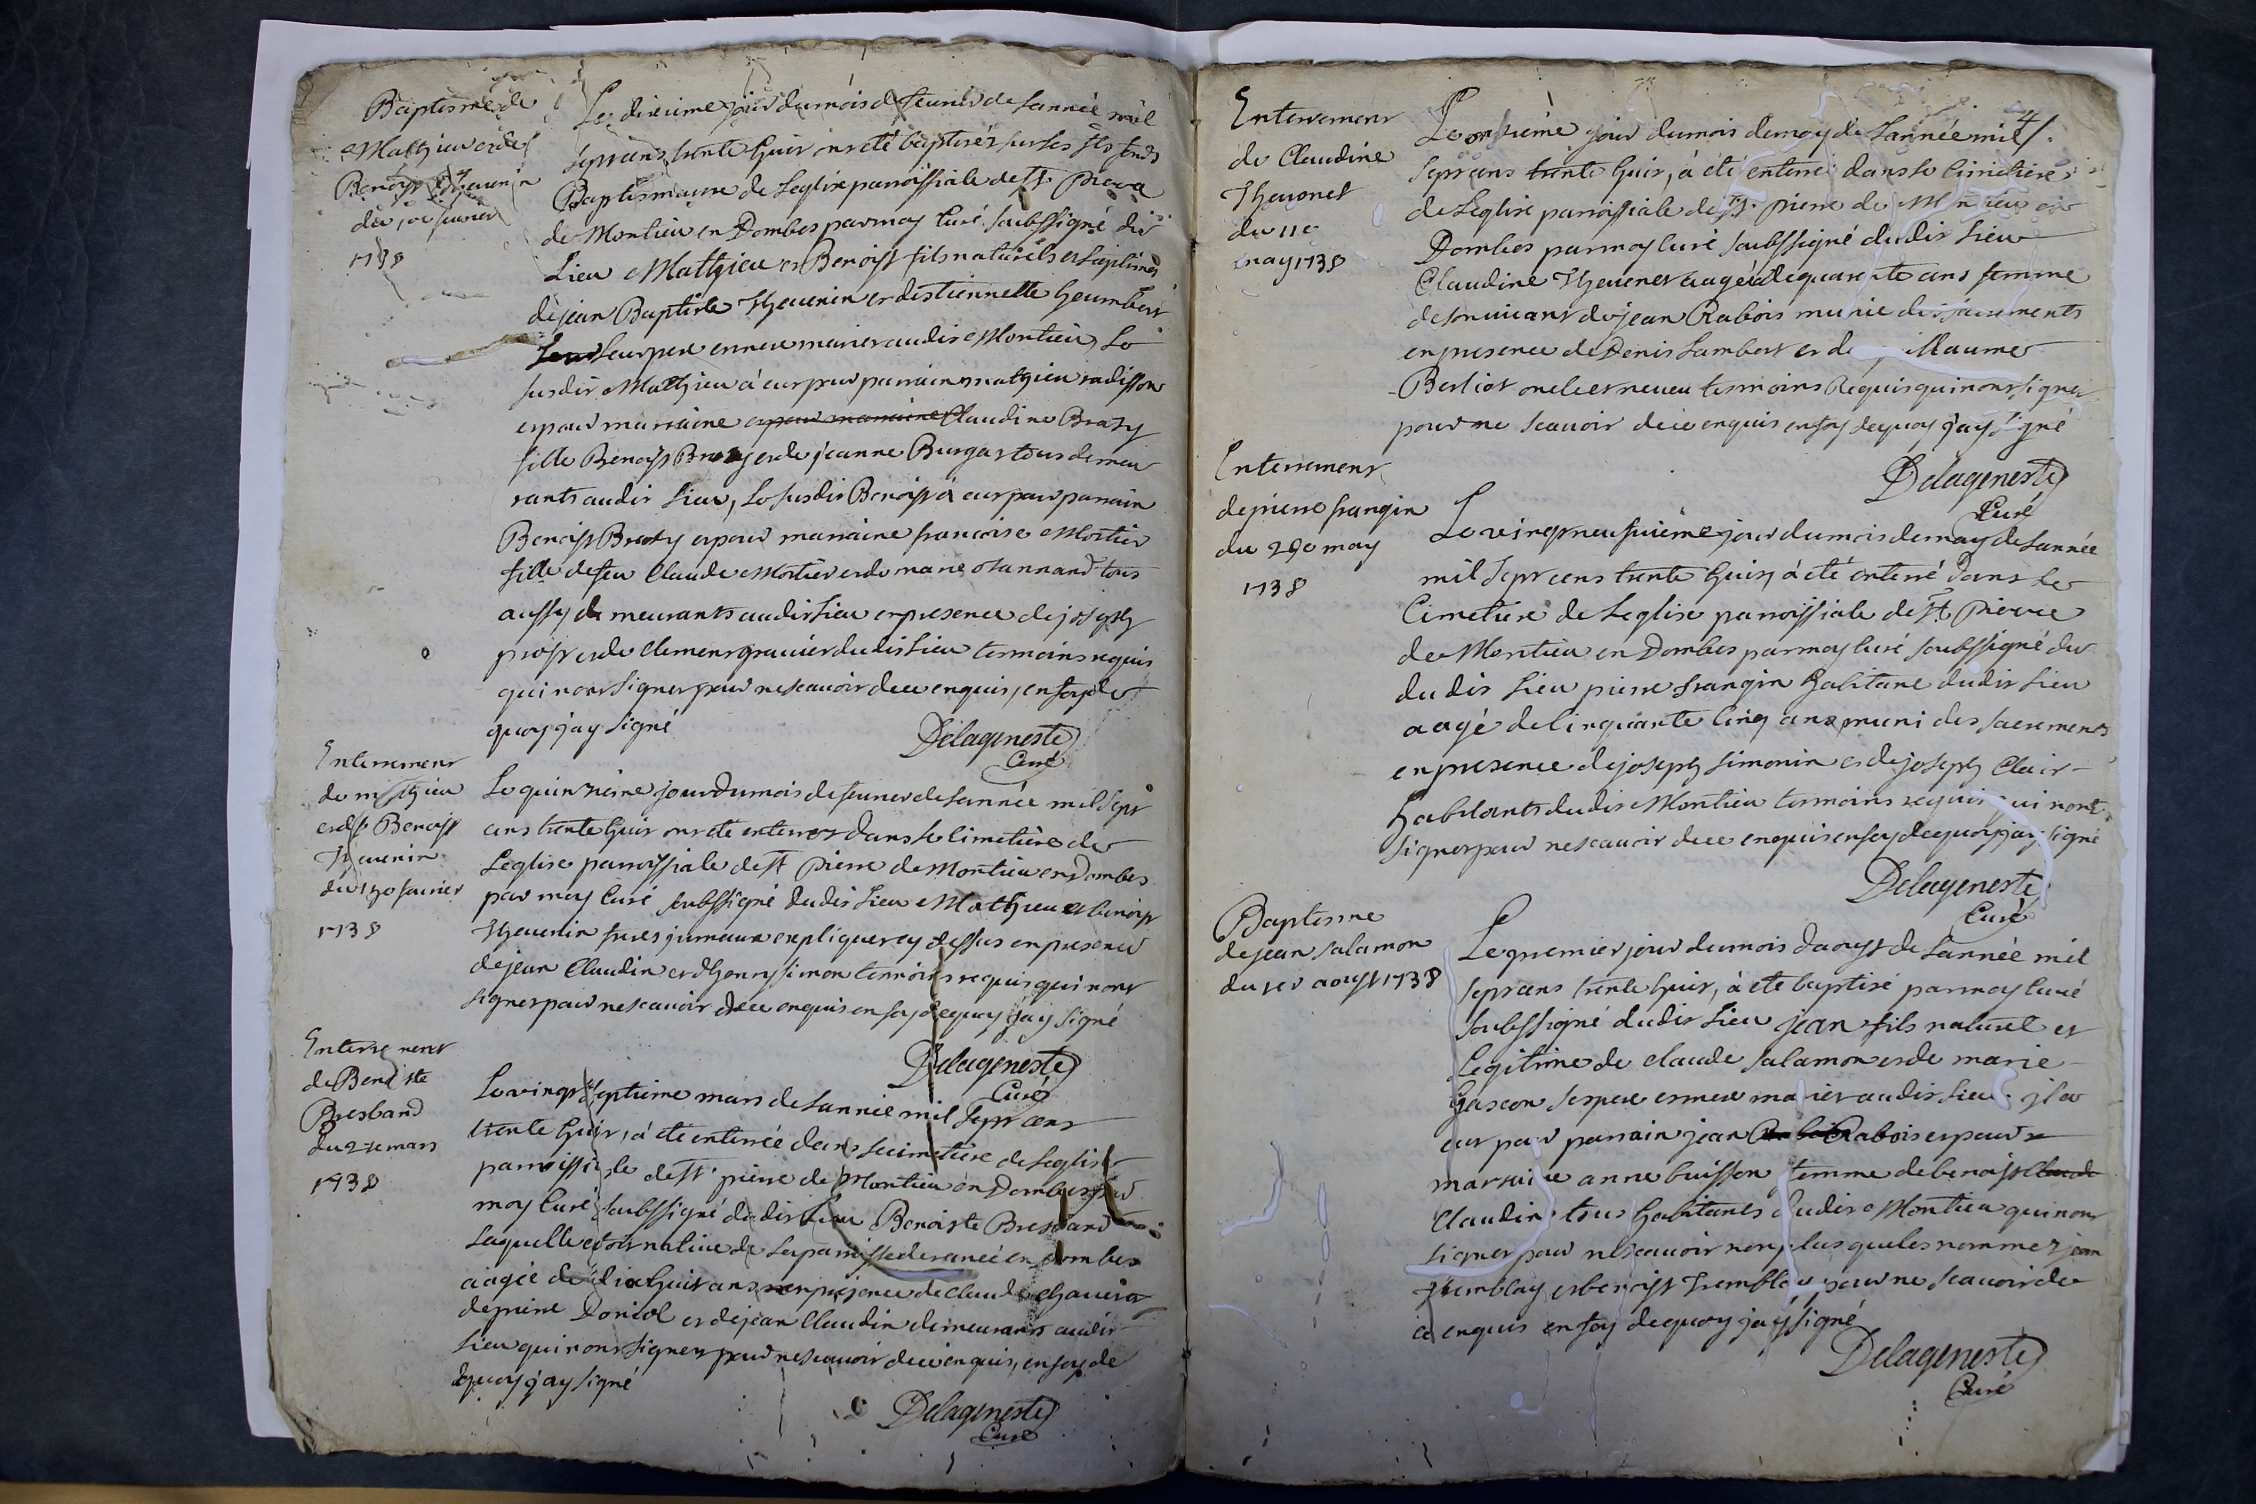 Baptisme de
Mathieu et de
Benoist Thevenin
du 10e feuvrier
1738
Le dixieme jour du mois de feuvrier de l'année mil
sept cens trente huit ont eté baptisés sur les sts fonds
Baptismaux de Leglise parroissiale de st. Pierre
de Montieu en Dombes par moy Curé soubssigné du dit
Lieu Mathieu et Benoist fils naturels et legitimes
de jean Baptiste Thevenin et destiennette heumbert
leur pere et mere mariez audit Montieu, Le
susdit Mathieu à eut pour parrain mathieu radisson
et pour marraine et pour marraine Claudine Braty
fille Benoist Braty et de jeanne Burgat tous demeu
rants audit Lieu, Le susdit Benoist à eut pour parrain
Benoist Braty et pour marraine francoise Mortier
fille de feu Claude Mortier et de marie osannand tous
aussy demeurants audit Lieu en presence de joseph
prost et de Clement gravier dudit Lieu temoins requis
qui n'ont signer pour ne scavoir de ce enquis, en foy de
quoy j'ay signé
Delageneste
Curé
Enterrement
de mathieu
et de Benoist
Thevenin
du 15e feuvrier
1738
Le quinzieme jour du mois de feuvrier de l'année mil sept
cens trente huit ont eté enterrez dans le Cimetiere de
Leglise parroissiale de st Pierre de Montieu en Dombes
par moy Curé soubssigné dudit Lieu Mathieu et benoist
Thevenin freres jumeaux expliquez cy dessus en presence
de jean Claudin et d'honny simon temoins requis qui n'ont
signer pour ne scavoir de ce enquis en foy de quoy j'ay signé
Delageneste
Curé
Enterrement
de Benoiste
Bresband
du 27e mars
1738
Le vingt septieme mars de l'année mil sept cens
trente huit, à eté enterrée dans le cimetiere de Leglise
parroissiale de st. pierre de Montieu en Dombes par
moy Curé soubssigné dudit Lieu Benoiste Bresband
laquelle etoit native de la parroisse de rancé en dombes
aagée de dix huit ans en presence de claude chavera
de pierre Doniol et de jean Claudin demeurants audit
Lieu qui n'ont signer pour ne scavoir de ce enquis, en foy de
quoy j'ay signé
Delageneste
Curé
4
Enterrement
de Claudine
Thevenet
du 11e
may 1738
Le onzieme jour du mois de may de l'année mil
sept cens trente huit, à eté enterré dans le Cimetiere
de Leglise parroissiale de st. pierre de Montieu en
Dombes par moy Curé soubssigné dudit Lieu
Claudine Thevenet aagée de quarente ans femme
de son vivant de jean Rabois munie des sacrements
en presence de Denis Lambert et de guillaume
Berliot oncle et neveu temoins Requis qui n'ont signer
pour ne scavoir de ce enquis en foy de quoy j'ay signé
Delageneste
Curé
Enterrement
de pierre frangin
du 29e may
1738
Le vingt neufuieme jour du mois de may de l'année
mil sept cens trente huit, à eté enterré dans Le
Cimetiere de Leglise parroissiale de st. Pierre
de Montieu en Dombes par moy Curé soubssigné du
dudit Lieu pierre frangin habitant dudit Lieu
aagé de Cinquante Cinq ans, muni des sacrements
en presence de joseph simonin et de joseph Clair
habitants dudit Montieu temoins requis qui n'ont
signer pour ne scavoir de ce enquis en foy de quoy j'ay signé
Delageneste
Curé
Baptisme
de jean salamon
du 1er aoust 1738
Le premier jour du mois d'aoust de L'année mil
sept cens trente huit, à eté baptisé par moy Curé
soubssigné dudit Lieu jean fils naturel et
Legitime de claude salamon et de marie
Gascon ses pere et mere mariez audit Lieu il a
eut pour parrain jean Rabois et pour
marraine anne buisson femme de benoist Claude
Claudin tous habitants dudit Montieu qui n'ont
signer pour ne scavoir non plus que les nommez jean
Tremblay et benoist Tremblay pour ne scavoir de
ce enquis en foy de quoy j'ay signé
Delageneste
Curé